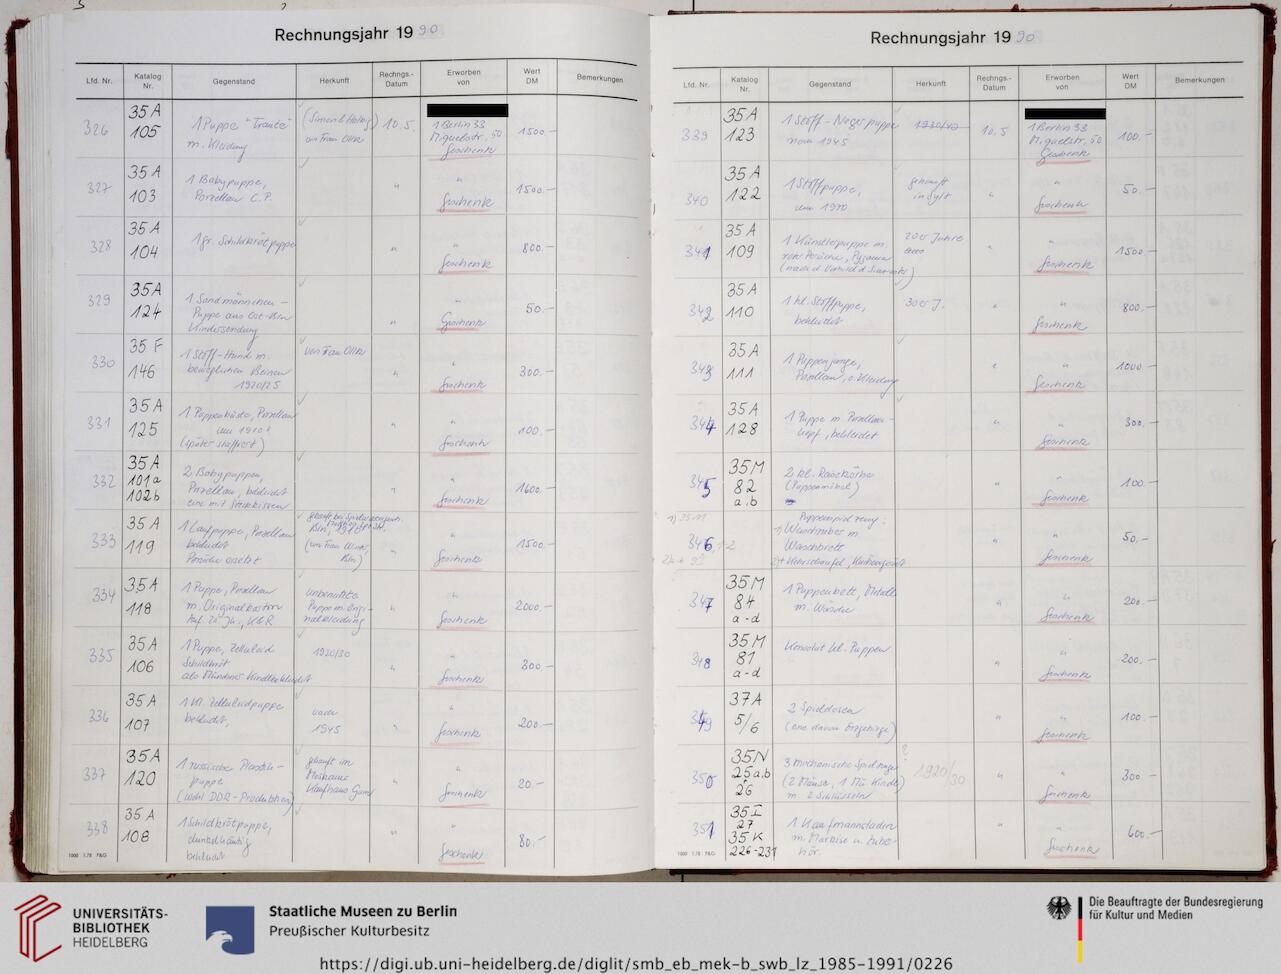 Rechnungsjahr 1990
Lfd. Nr. Katalog Nr. Gegenstand Herkunft Rechngs.-Datum Erworben von Wert DM Bemerkungen
326 35 A 105 1 Puppe "Traute" m. Kleidung 10.5. 1 Berlin 33 Miquelstr. 50 Geschenk 1500.-
327 35 A 103 1 Babypuppe, Porzellan C.P. " " Geschenk 1500.-
328 35 A 104 1 gr. Schildkrötpuppe " " Geschenk 800.-
329 35 A 124 1 Sandmännchen-Puppe aus Ost-Bln Kindersendung " " Geschenk 50.-
330 35 F 146 1 Stoff-Hund m. beweglichen Beinen 1920/25 von Frau " " Geschenk 300.-
331 35 A 125 1 Puppenbüste, Porzellan um 1910 (später staffiert) " " Geschenk 100.-
332 35 A 101a 102b 2 Babypuppen, Porzellan, bekleidet eine mit Steckkissen " " Geschenk 1600.-
333 35 A 119 1 Laufpuppe, Porzellan bekleidet Perücke ersetzt " " Geschenk 1500.-
334 35 A 118 1 Puppe, Porzellan m. Originalkarton Anf. 20. Jh., K&R unbenutzte Puppe m. Originalkleidung " " Geschenk 2000.-
335 35 A 106 1 Puppe, Zelluloid Schildkröt als Münchner Kindl bekleidet 1920/30 " " Geschenk 300.-
336 35 A 107 1 kl. Zelluloidpuppe bekleidet, nach 1945 " " Geschenk 200.-
337 35 A 120 1 russische Plastik-puppe (wohl DDR-Produktion) gekauft im Moskauer Kaufhaus Gum " " Geschenk 20.-
338 35 A 108 1 Schildkrötpuppe, dunkelhäutig bekleidet " " Geschenk 80.-
1000 1.78 F&G
Rechnungsjahr 1990
Lfd. Nr. Katalog Nr. Gegenstand Herkunft Rechngs.-Datum Erworben von Wert DM Bemerkungen
339 35 A 123 1 Stoff-Negerpuppe nach 1945 1930/40 10.5 1 Berlin 33 Miquelstr. 50 Geschenk 100.-
340 35 A 122 1 Stoffpuppe, um 1970 gekauft in Sylt " " Geschenk 50.-
341 35 A 109 1 Künstlerpuppe m. roter Perücke, Pyjama 20er Jahre " " Geschenk 1500.-
342 35 A 110 1 kl. Stoffpuppe, bekleidet 30er J. " " Geschenk 800.-
343 35 A 111 1 Puppenjunge, Porzellan, o. Kleidung " " Geschenk 1000.-
344 35 A 128 1 Puppe m. Porzellan-kopf, bekleidet " " Geschenk 300.-
345 35 M 82 a,b 2 kl. (Puppenmöbel) " " Geschenk 100.-
346 1-2 Puppenspielzeug: 1) Waschzuber m Waschbrett 2) + Kehrschaufel, " " Geschenk 50,-
347 35 M 84 a-d 1 Puppenbett, Metall m. Wäsche " " Geschenk 200.-
348 35 M 81 a-d kl. Puppen " " Geschenk 200.-
349 37 A 5/6 2 Spieldosen (eine davon Erzgebirge) " " Geschenk 100.-
350 35 N 25a,b 26 3 mechanische Spielzeuge (2 Mäuse, 1 Mü. Kindl) m. 2 Schlüsseln ? 1920/30 " " Geschenk 300.-
351 35 I 27 35 K 226-231 1 Kaufmannsladen m. Markise u. Zube-hör. " " Geschenk 600.-
1000 1.78 F&G
UNIVERSITÄTS-
BIBLIOTHEK
HEIDELBERG
Staatliche Museen zu Berlin
Preußischer Kulturbesitz
Die Beauftragte der Bundesregierung
für Kultur und Medien
https://digi.ub.uni-heidelberg.de/diglit/smb_eb_mek-b_swb_lz_1985-1991/0226